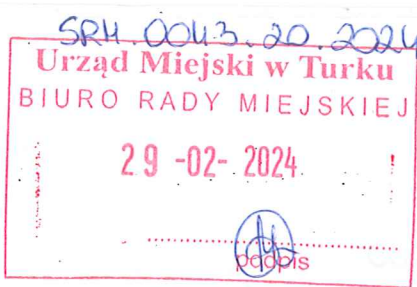 SRM.0043.20.2024
Urząd Miejski w Turku
BIURO RADY MIEJSKIEJ
29 -02- 2024
podpis